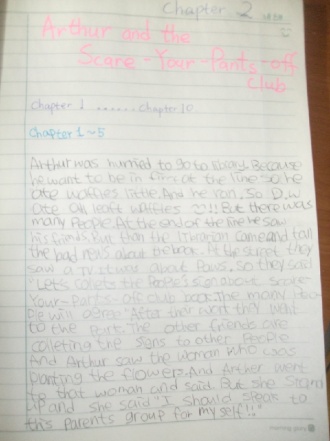 Chapter. 2
Arthur and the
Scare-Your-Pants-off
Club
Chapter 1 ...... Chapter 10.
Chapter 1~5
Arthur was hurried to go to library. Because
he want to be in first at the line so he
ate waffles little. And he ran. So D.W
ate all left waffles !! But there was
many people. At the end of the line he saw
his friends. But than the librarian came and tall
the bad news about the book. At the street they
saw a TV about Paws. So they said
"Let's collets the People's sign about Scare-
Your-Pants-off club book. The many Peo
ple will agree" After they went they went
to the Part. The other friends are
colleting the signs to other People
And Arthur saw the woman who was
planting the flowers. And Arther went
to that woman and said. But she stand
up and she said "I should speak to
this Parents group for my self!!"
morning glory